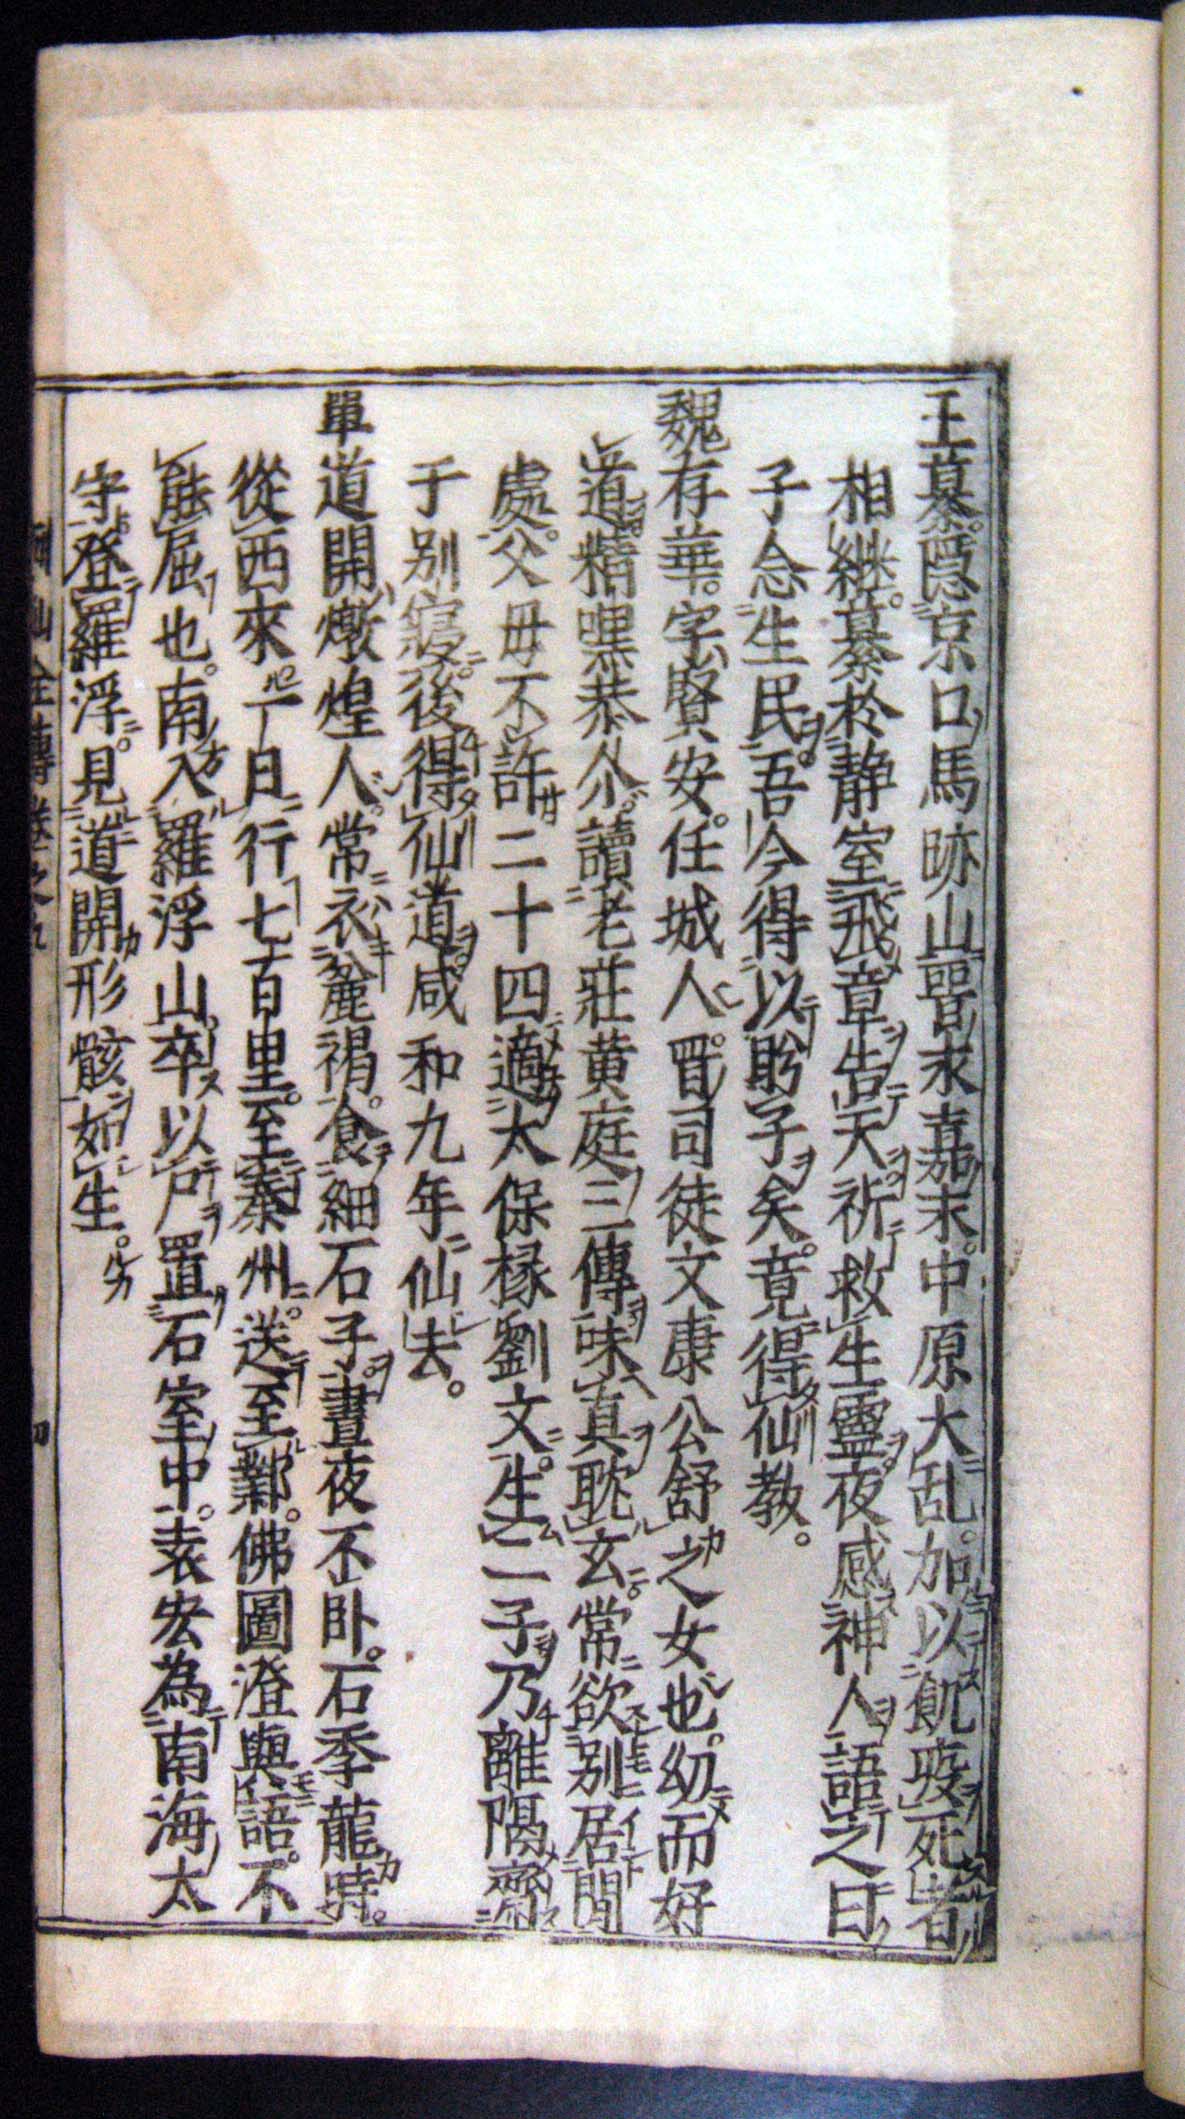 王纂。隠京口馬跡山晋永嘉末。中原大乱。加以飢疫死者
相継。纂於静室飛章告天祈救生霊夜感神人語之曰
子念生民。吾今得以盻子矣。竟得仙教。
魏存華。字賢安。任城人晋司徒文康公舒之女也。幼而好
道精嘿恭介。讀老莊黄庭三傳味真耽玄。常欲别居閒
處。父毋不許二十四適太保掾劉文。生二子乃離隔齋
于别寢。後得仙道咸和九年仙去。
單道開燉煌人。常衣麄褐。食細石子晝夜不卧。石季龍時。
從西來。一日行七百里。至秦州。送至鄴。佛圖澄與語。不
能屈也。南入羅浮山。卒以尸置石室中。袁宏為南海太
守登羅浮。見道開形骸如生。